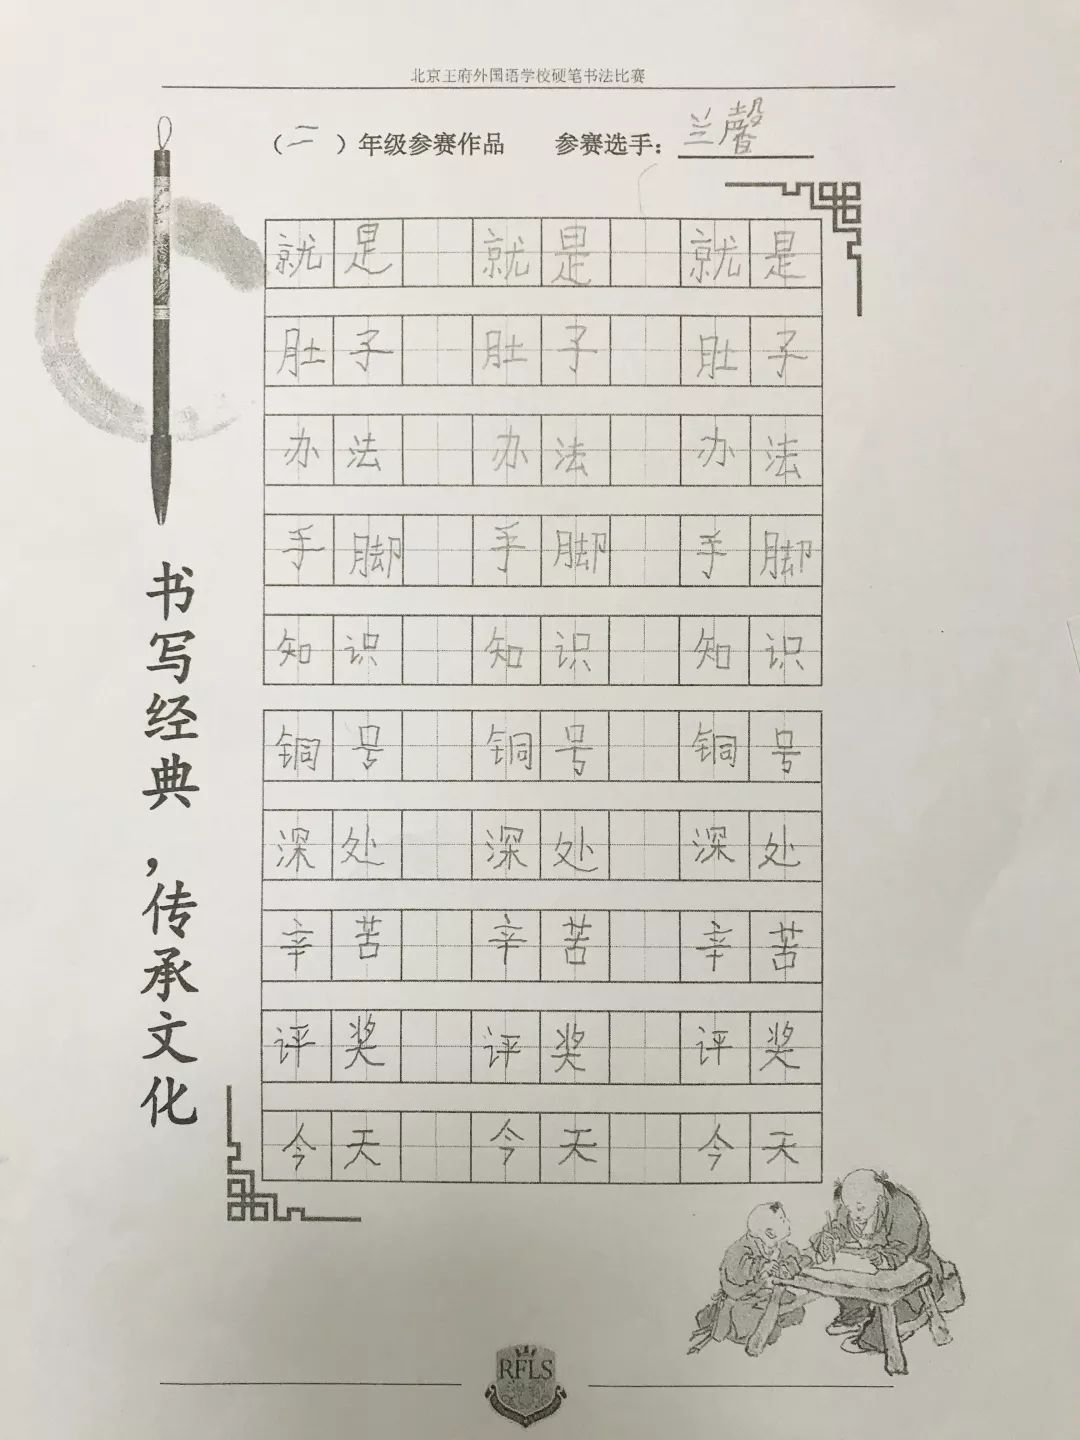 北京王府外国语学校硬笔书法比赛
（二）年级参赛作品 参赛选手：兰馨
就是 就是 就是
肚子 肚子 肚子
办法 办法 办法
手脚 手脚 手脚
知识 知识 知识
铜号 铜号 铜号
深处 深处 深处
辛苦 辛苦 辛苦
评奖 评奖 评奖
今天 今天 今天
书写经典，传承文化
RFLS